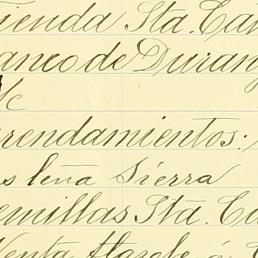 ienda Sta. Ca
anco de Duran
c/
rendamientos:
s leña Sierra
emillas Sta. Ca
Venta